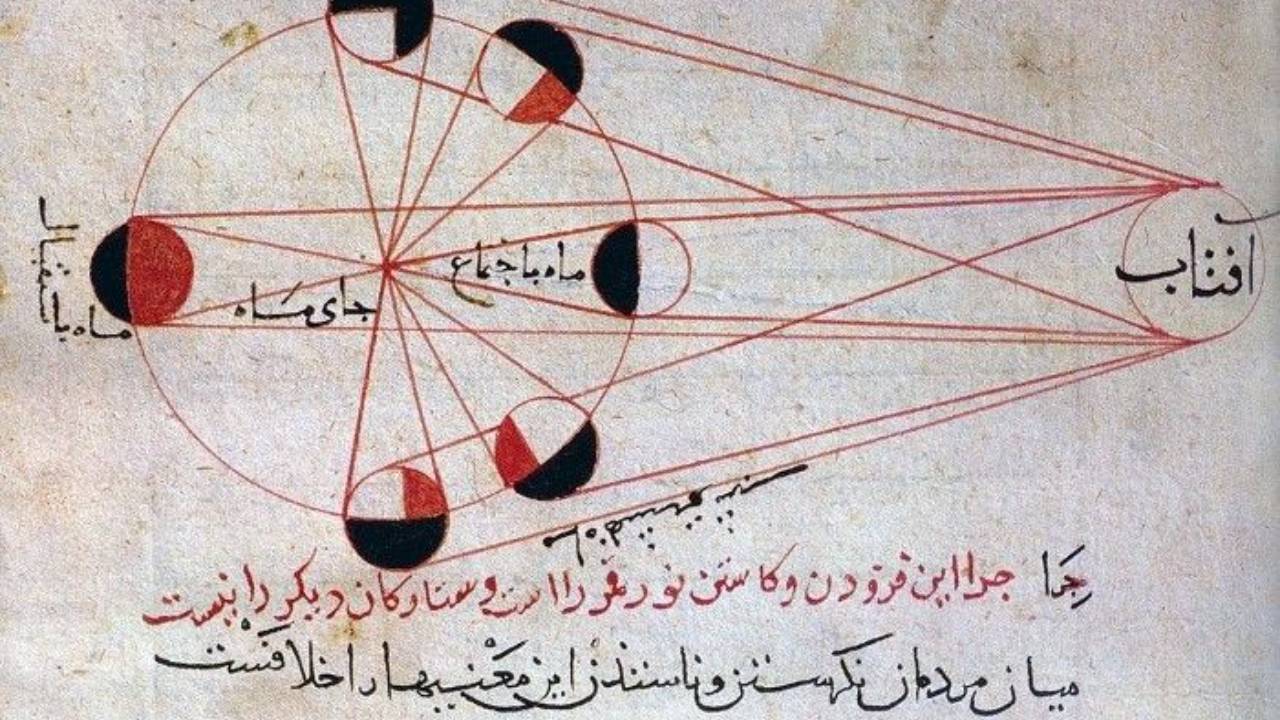 آفتاب
ماه باجتماع
جای ماه
ماه باستقبال
چرا این فزودن و کاستن نور قمر را است و ستارکان دیکر را نیست
میان مردمان نکرستن این معنیها را خلافست